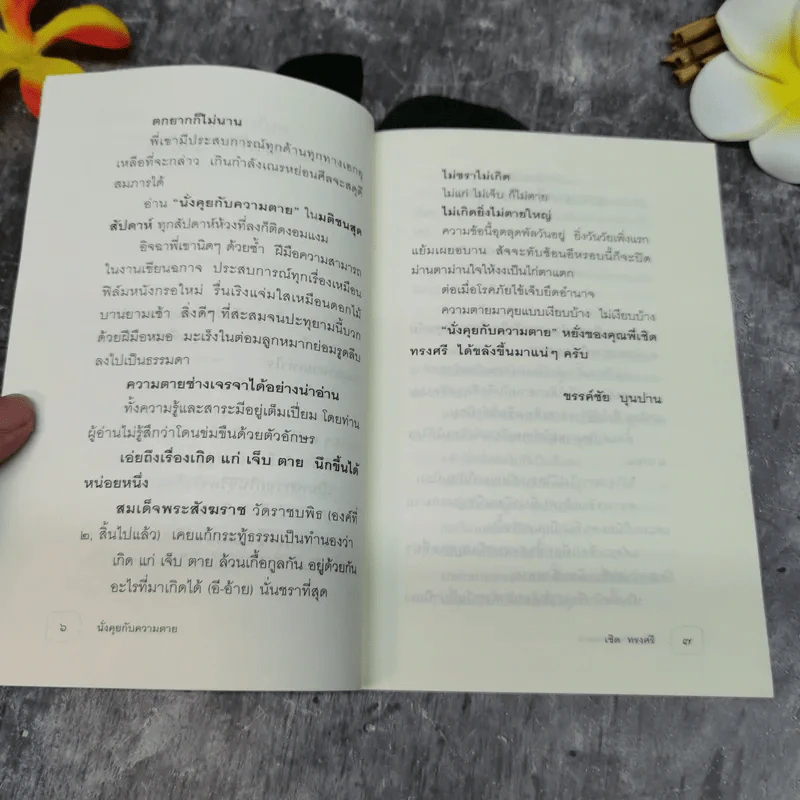 ตกยากก็ไม่นาน
พี่เขามีประสบการณ์ทุกด้านทุกทางเอกอุ
เหลือที่จะกล่าว เกินกำลังเณรหย่อนศีลจะสดุดี
สมภารได้
อ่าน “นั่งคุยกับความตาย” ในมติชนสุด
สัปดาห์ ทุกสัปดาห์ห้วงที่ลงก็ติดงอมแงม
อิจฉาพี่เขานิดๆ ด้วยซ้ำ ฝีมือความสามารถ
ในงานเขียนฉกาจ ประสบการณ์ทุกเรื่องเหมือน
ฟิล์มหนังกรอใหม่ รื่นเริงแจ่มใสเหมือนดอกไม้
บานยามเช้า สิ่งดีๆ ที่สะสมจนปะทุยามนี้บวก
ด้วยฝีมือหมอ มะเร็งในต่อมลูกหมากย่อมรูดสิบ
ลงไปเป็นธรรมดา
ความตายช่างเจรจาได้อย่างน่าอ่าน
ทั้งความรู้และสาระมีอยู่เต็มเปี่ยม โดยท่าน
ผู้อ่านไม่รู้สึกว่าโดนข่มขืนด้วยตัวอักษร
เอ่ยถึงเรื่องเกิด แก่ เจ็บ ตาย นึกขึ้นได้
หน่อยหนึ่ง
สมเด็จพระสังฆราช วัดราชบพิธ (องค์ที่
๒, สิ้นไปแล้ว) เคยแก้กระทู้ธรรมเป็นทำนองว่า
เกิด แก่ เจ็บ ตาย ล้วนเกื้อกูลกัน อยู่ด้วยกัน
อะไรที่มาเกิดได้ (อี-อ้าย) นั่นชราที่สุด
๖ นั่งคุยกับความตาย
ไม่ชราไม่เกิด
ไม่แก่ ไม่เจ็บ ก็ไม่ตาย
ไม่เกิดยิ่งไม่ตายใหญ่
ความข้อนี้อุตลุดพัลวันอยู่ ยิ่งวันวัยเพิ่งแรก
แย้มเผยอบาน สัจจะทับซ้อนอีหรอบนี้ก็จะปิด
ม่านตาม่านใจให้งงเป็นไก่ตาแตก
ต่อเมื่อโรคภัยไข้เจ็บยึดอำนาจ
ความตายมาคุยแบบเงียบบ้าง ไม่เงียบบ้าง
“นั่งคุยกับความตาย” หยั่งของคุณพี่เชิด
ทรงศรี ได้ขลังขึ้นมาแน่ๆ ครับ
ขรรค์ชัย บุนปาน
เชิด ทรงศรี ๗